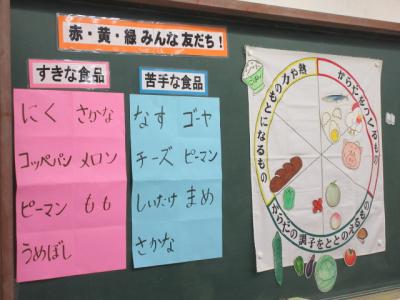 赤・黄・緑 みんな 友だち！
すきな食品
にく さかな
コッペパン メロン
ピーマン もも
うめぼし
苦手な食品
なす ゴーヤ
チーズ ピーマン
しいたけ まめ
さかな
力や熱
のもとになるもの
からだをつくるもの
からだの調子をととのえるもの